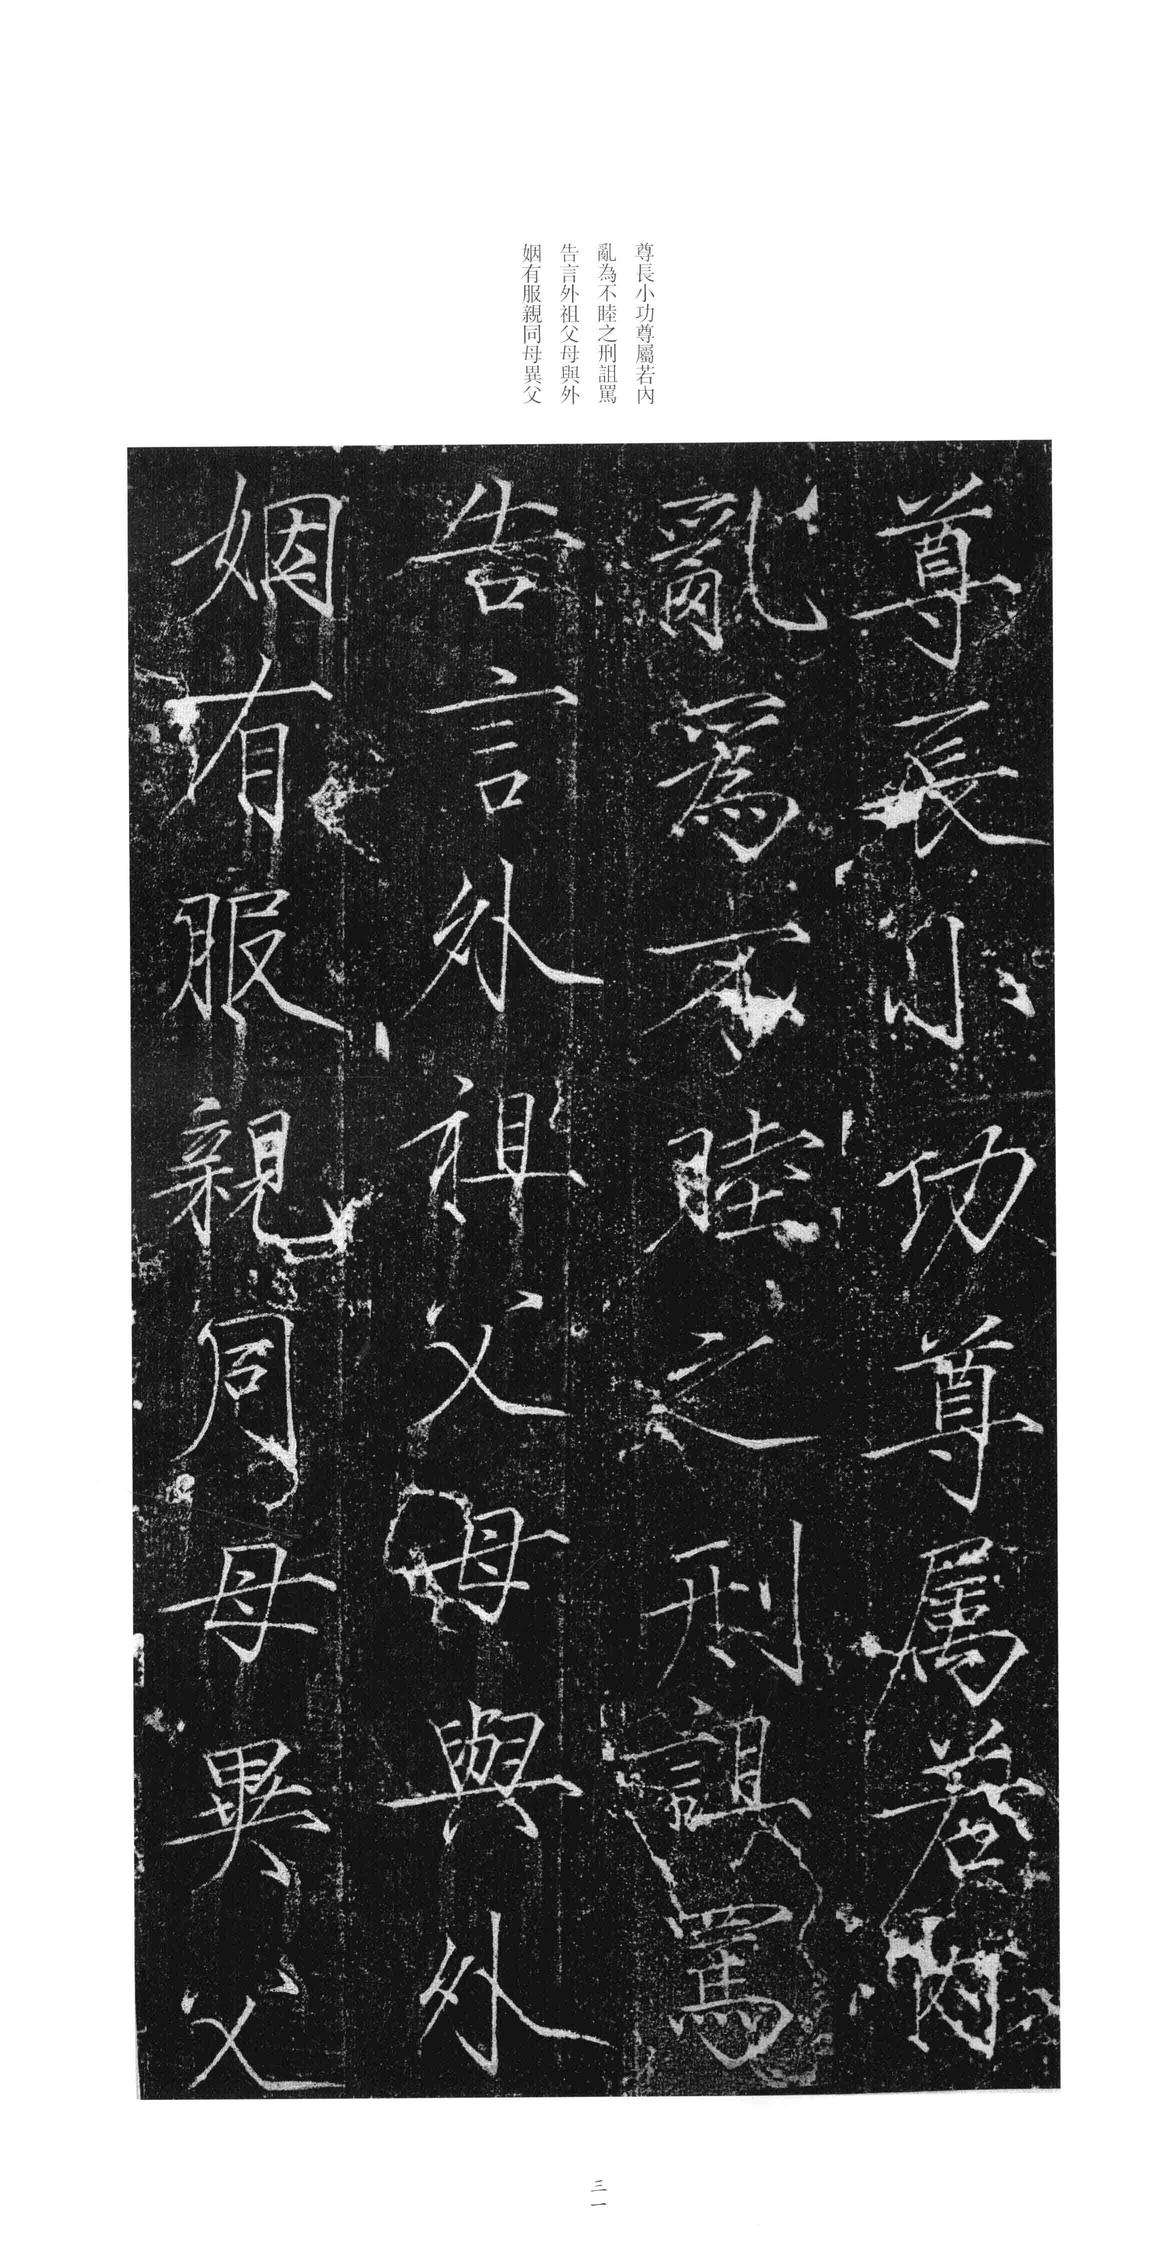 尊長小功尊屬若內
亂為不睦之刑詛罵
告言外祖父母與外
姻有服親同母異父
尊長小功尊屬若內
亂爲不睦之刑詛罵
告言外祖父母與外
姻有服親同母異父
三一